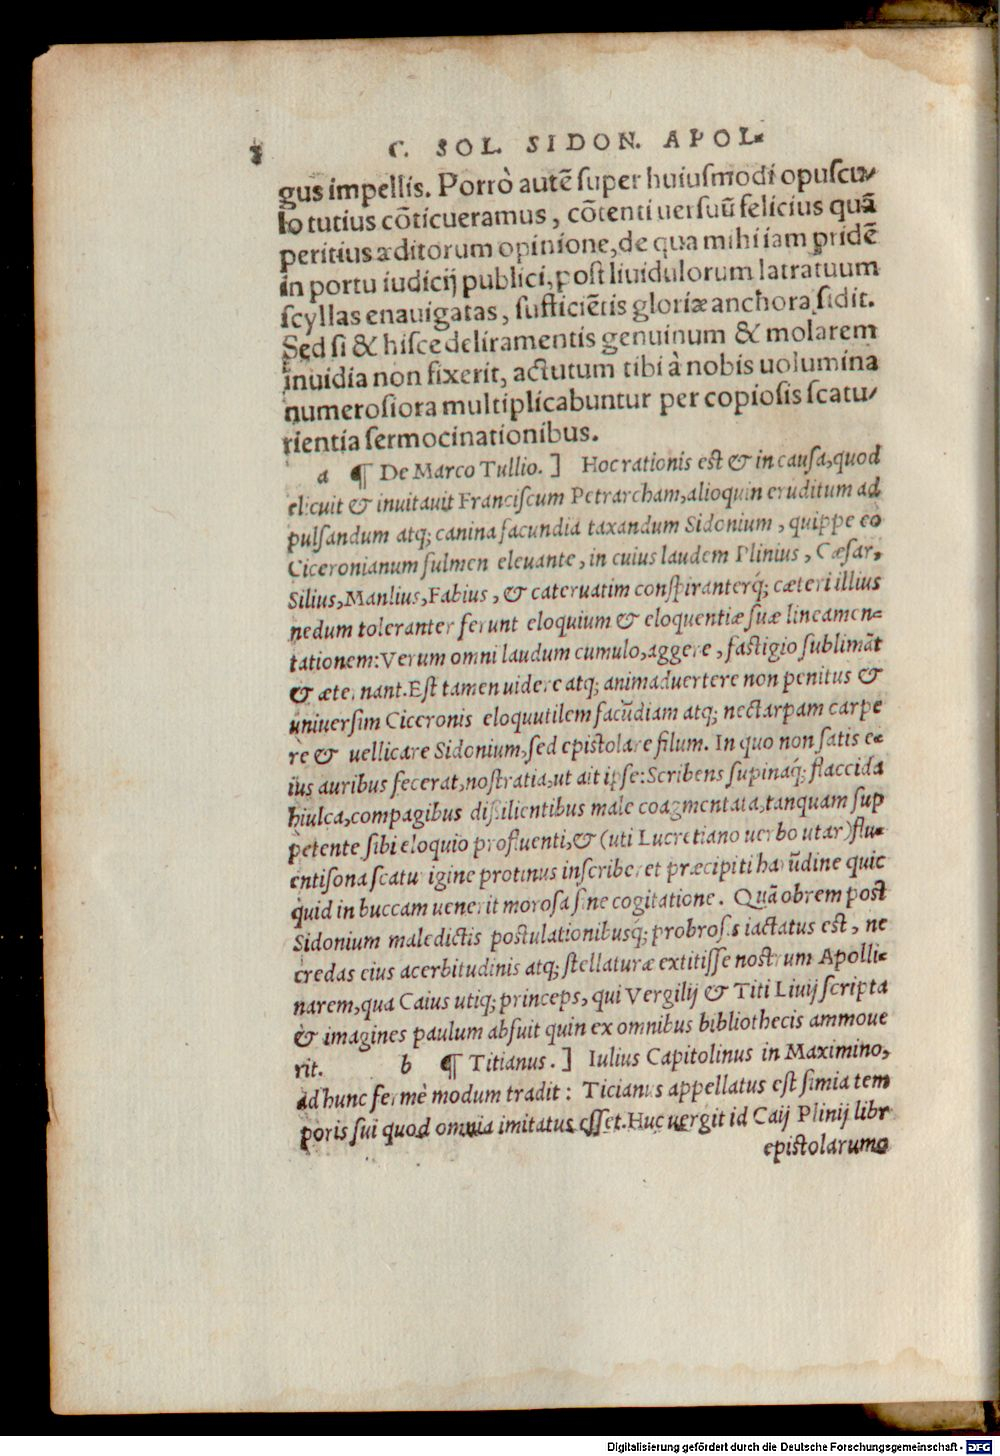 8 C. SOL. SIDON. APOL-
gus impellis. Porrò autē super huiusmodi opuscu/
lo tutius cōticueramus, cōtenti uersuū felicius quā
peritius æditorum opinione, de qua mihi iam pridē
in portu iudicij publici, post liuidulorum latratuum
scyllas enauigatas, sufficiētis gloriæ anchora sidit.
Sed si & hisce deliramentis genuinum & molarem
inuidia non fixerit, actutum tibi à nobis uolumina
numerosiora multiplicabuntur per copiosis scatu/
rientia sermocinationibus.
a ¶ De Marco Tullio. ] Hoc rationis est & in causa, quod
elicuit & inuitauit Franciscum Petrarcham, alioquin eruditum ad
pulsandum atq; canina facundia taxandum Sidonium, quippe eo
Ciceronianum fulmen eleuante, in cuius laudem Plinius, Cæsar,
Silius, Manlius, Fabius, & cateruatim conspiranterq́; cæteri illius
nedum toleranter ferunt eloquium & eloquentiæ suæ lineamen-
tationem: Verum omni laudum cumulo, aggere, fastigio sublimāt
& æternant. Est tamen uidere atq; animaduertere non penitus &
uniuersim Ciceronis eloquutilem facūdiam atq; nectarpam carpe
re & uellicare Sidonium, sed epistolare filum. In quo non satis e-
ius auribus fecerat, nostratia, ut ait ipse: Scribens supinaq́; flaccida
hiulca, compagibus dissilientibus male coagmentata, tanquam sup
petente sibi eloquio profluenti, & (uti Lucretiano uerbo utar) flu-
entisona scaturigine protinus inscriberet præcipiti harūdine quic
quid in buccam uenerit morosa sine cogitatione. Quā obrem post
Sidonium maledictis postulationibusq́; probrosis iactatus est, ne
credas eius acerbitudinis atq; stellaturæ extitisse nostrum Apolli-
narem, qua Caius utiq; princeps, qui Vergilij & Titi Liuij scripta
& imagines paulum absuit quin ex omnibus bibliothecis ammoue
rit. b ¶ Titianus. ] Iulius Capitolinus in Maximino,
ad hunc fermè modum tradit: Ticianus appellatus est simia tem
poris sui quod omnia imitatus esset. Huc uergit id Caij Plinij libr
epistolarum
Digitalisierung gefördert durch die Deutsche Forschungsgemeinschaft - DFG